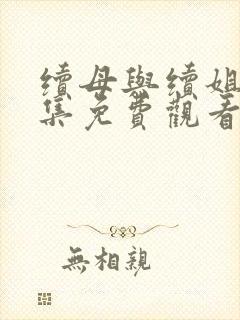 續母與續姐
集免費觀看
無相親